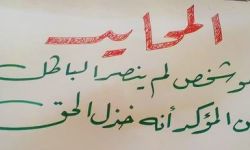 المحايد
هو شخص لم ينصر الباطل
من المؤكد أنه خذل الحق